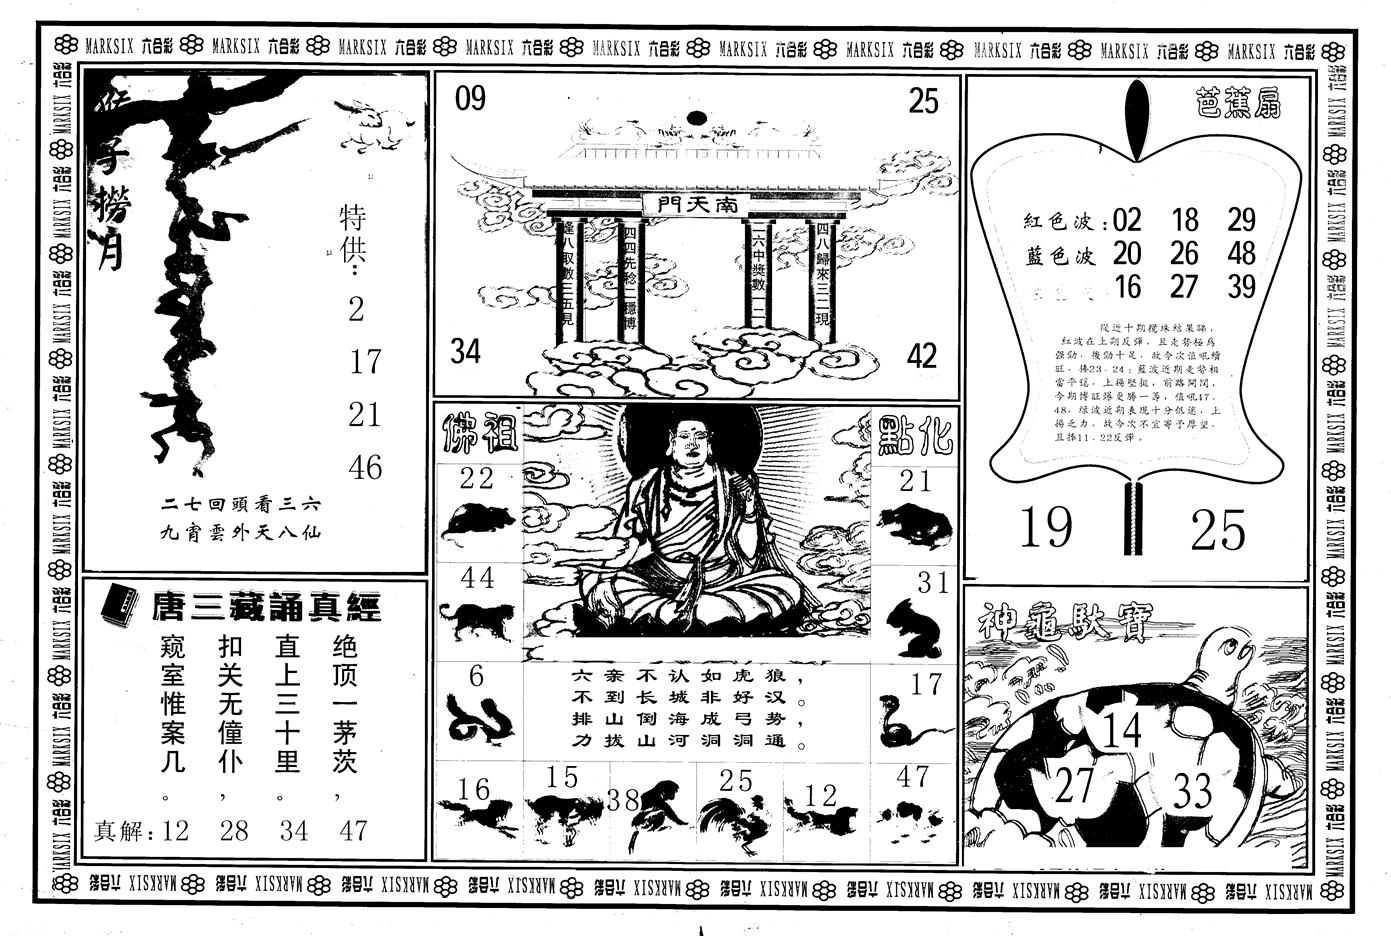 MARKSIX 六合彩 MARKSIX 六合彩 MARKSIX 六合彩 MARKSIX 六合彩 MARKSIX 六合彩 MARKSIX 六合彩 MARKSIX 六合彩 MARKSIX 六合彩 MARKSIX 六合彩 MARKSIX 六合彩
猴子撈月
特供：
2
17
21
46
二七回頭看三六
九宵雲外天八仙
唐三藏誦真經
绝顶一茅茨，
直上三十里。
扣关无僮仆，
窥室惟案几。
真解：12 28 34 47
09
25
南天門
逢八取數三五見
四四先稔二穩博
二六中獎數一二
四八歸來三二現
34
42
佛祖
點化
22
21
44
31
6
17
六亲不认如虎狼，
不到长城非好汉。
排山倒海成弓势，
力拔山河洞洞通。
16
15
38
25
12
47
芭蕉扇
紅色波：02 18 29
藍色波 20 26 48
16 27 39
從近十期攪珠結果睇，
紅波在上期反彈，且走勢極為
强勁，後勁十足，故今次值吼續
旺，捧23，24；藍波近期走勢相
當平穩，上揚堅挺，前路開闊，
今期博旺爆更勝一籌，值吼47，
48，绿波近期表現十分低迷，上
揚乏力，故今次不宜寄予厚望，
且捧11，22反彈。
19
25
神龜馱寶
14
27
33
MARKSIX 六合彩 MARKSIX 六合彩 MARKSIX 六合彩 MARKSIX 六合彩 MARKSIX 六合彩 MARKSIX 六合彩 MARKSIX 六合彩 MARKSIX 六合彩 MARKSIX 六合彩 MARKSIX 六合彩